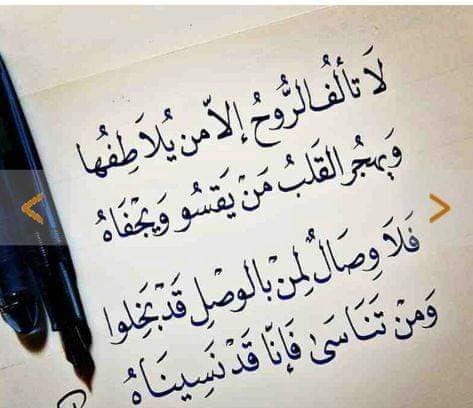 لَا تأْلَفُ الرُّوحُ إلاّ من يُلاَطِفُهَا
وَيهجُر القَلبُ مَنْ يَقسُو وَيَجْفَاهُ
فَلَا وِصَالٌ لِمنْ بالوَصْلِ قَدْ بَخِلوا
وَمنْ تَنَاسَىٰ فَإنّا قَدْ نَسِينَاهُ